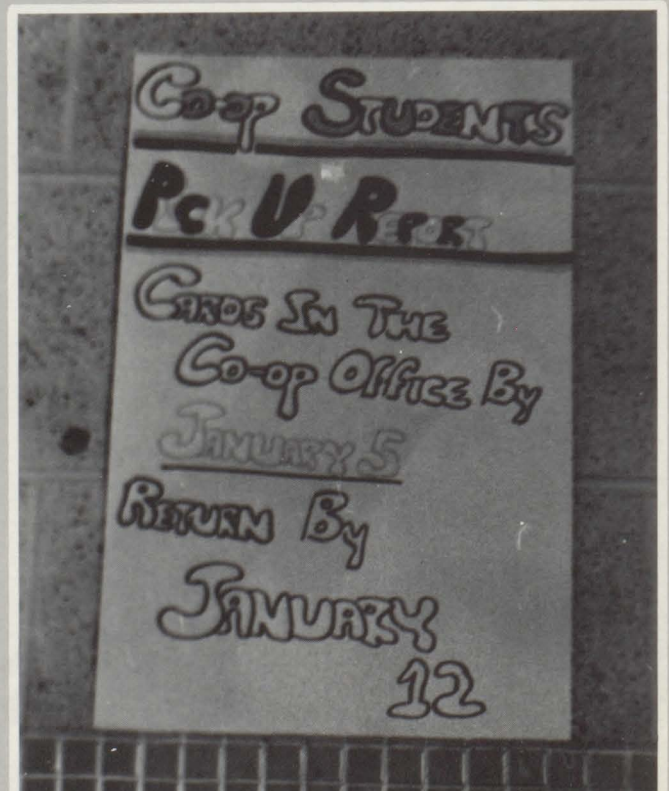 Co-op Students
Pick Up Report
Cards In The
Co-op Office By
January 5
Return By
January
12